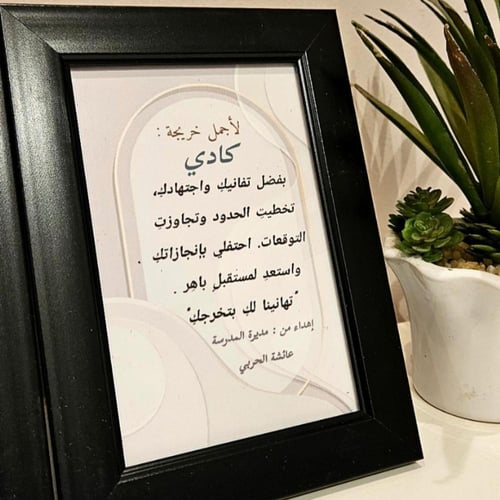 لأجمل خريجة :
كادي
بفضل تفانيكِ واجتهادكِ،
تخطيتِ الحدود وتجاوزتِ
التوقعات. احتفلي بإنجازاتكِ
واستعدِ لمستقبلٍ باهر .
"تهانينا لكِ بتخرجكِ"
إهداء من : مديرة المدرسة
عائشة الحربي